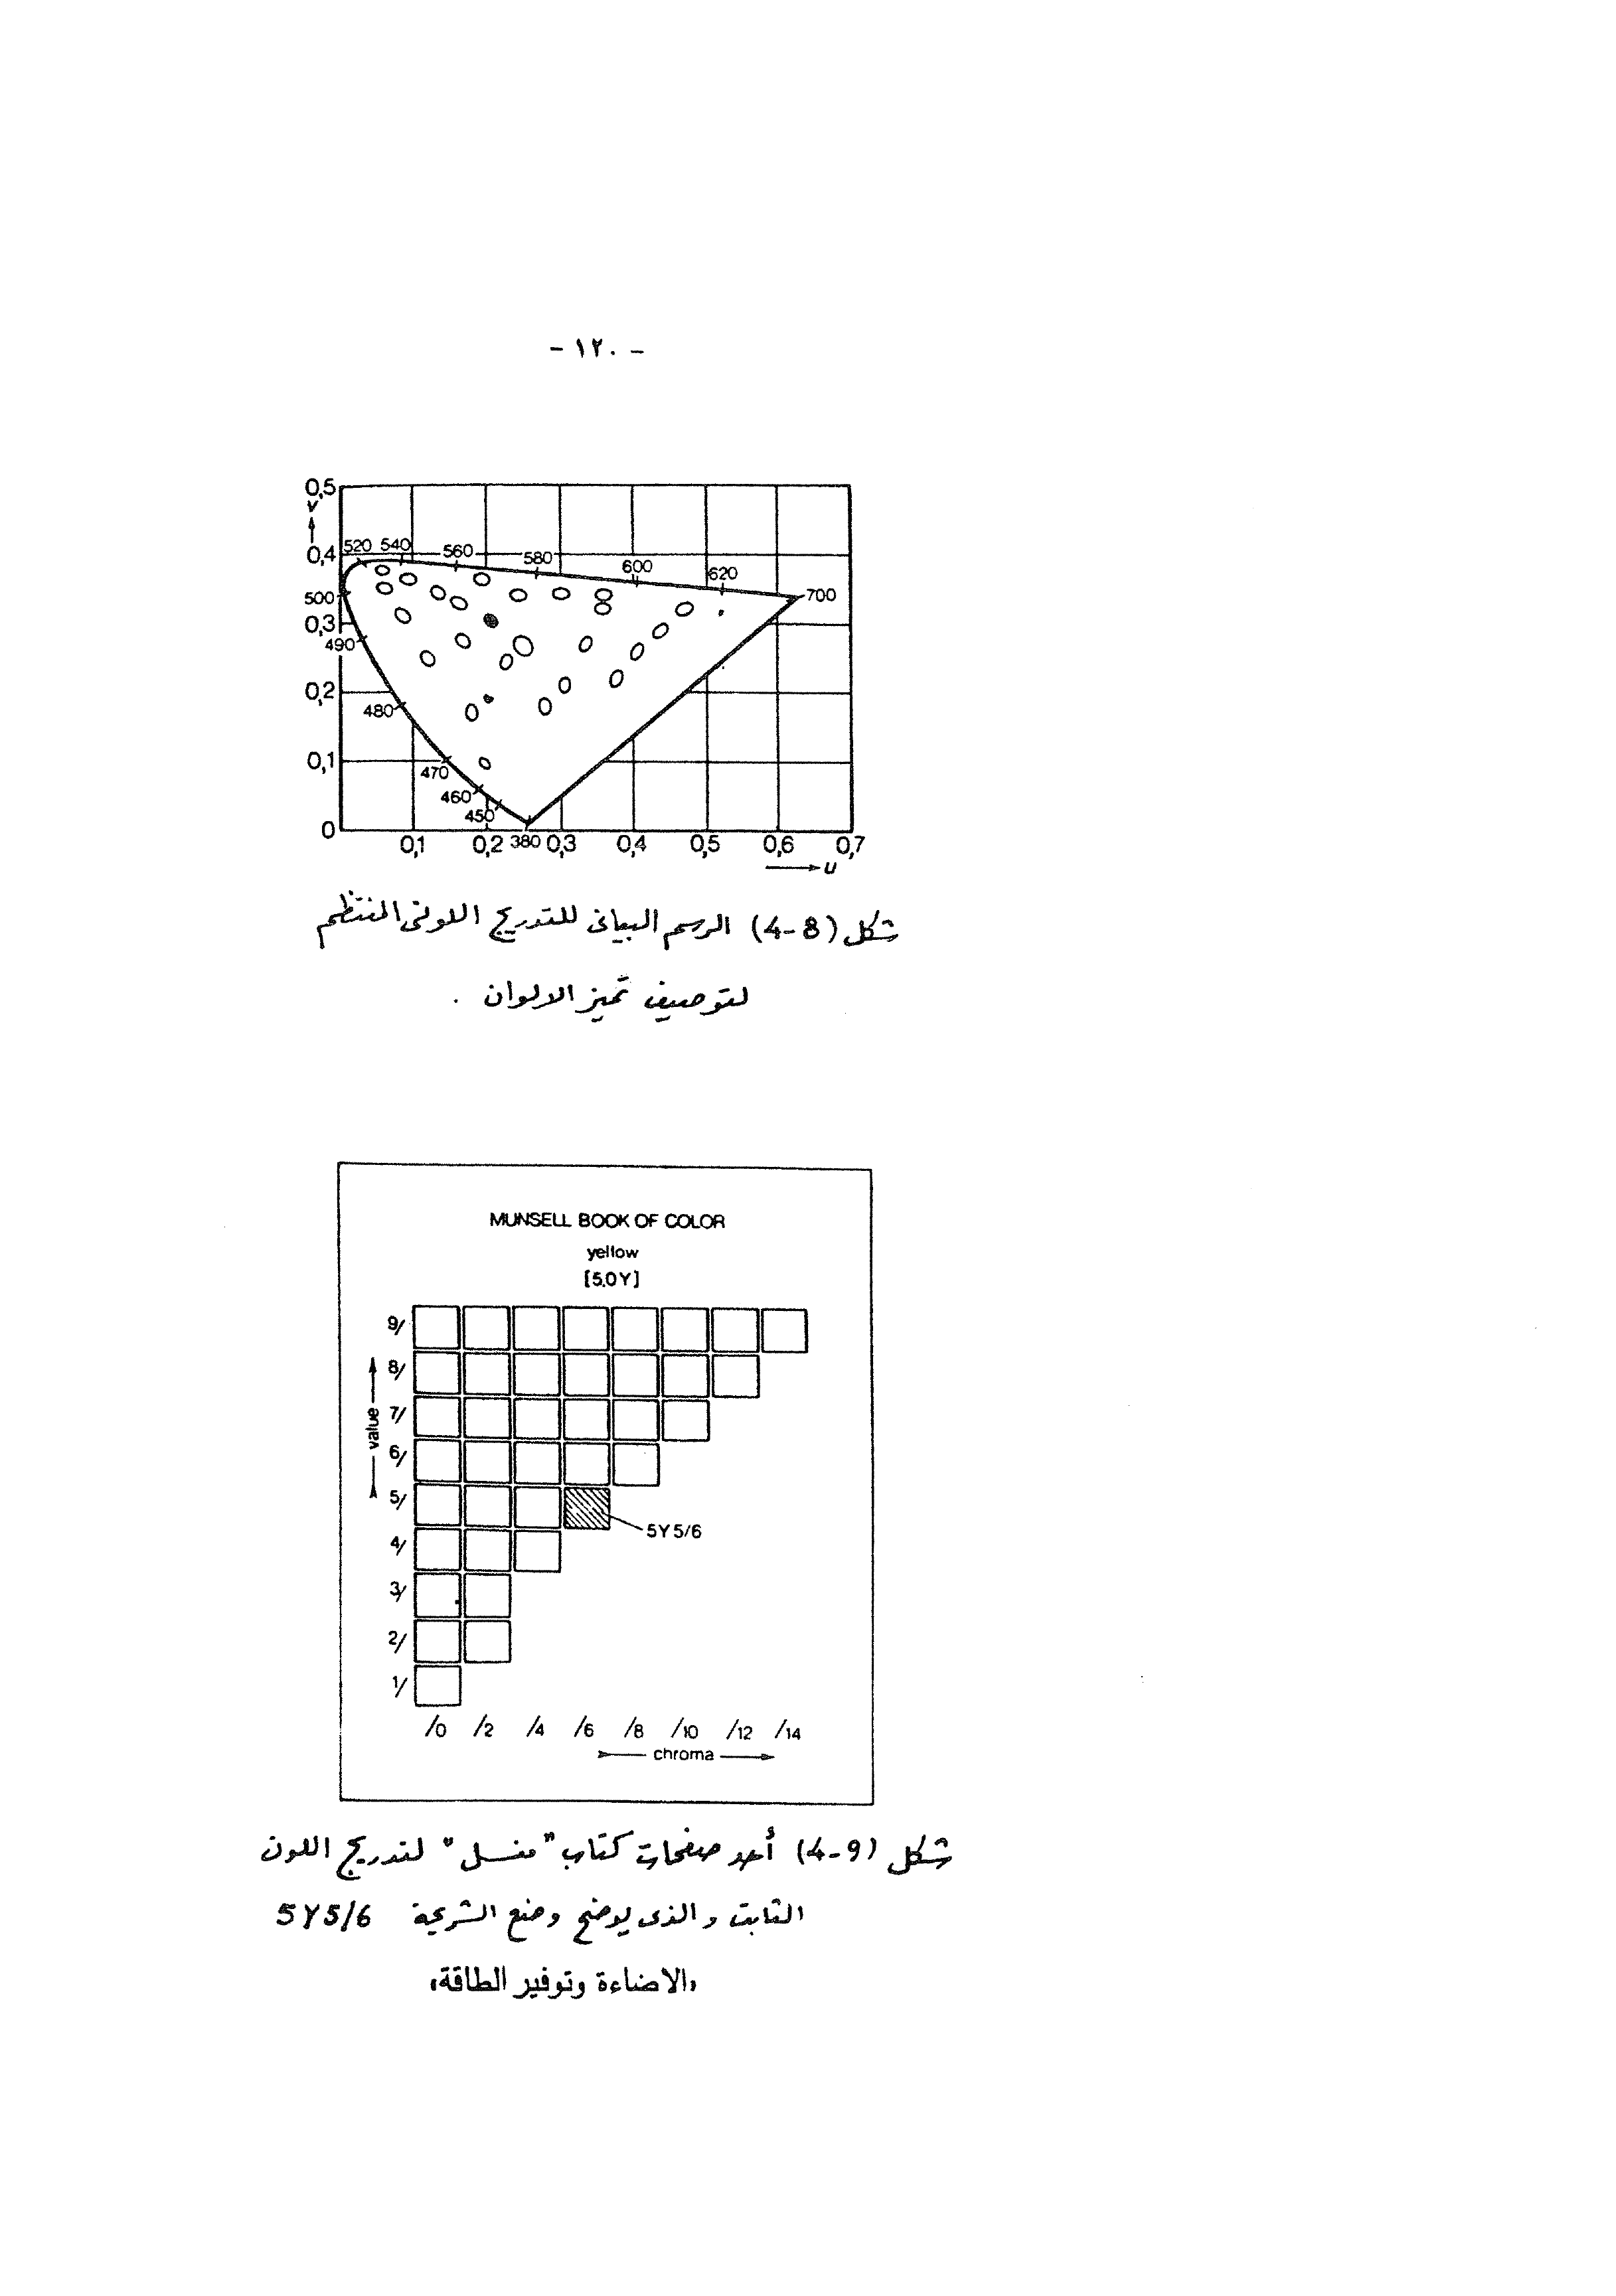 - ١٢٠ -
0,5
v
0,4
520 540 560 580 600 620
700
500
0,3
490
0,2
480
0,1
470
460
450
0
0,1 0,2 380 0,3 0,4 0,5 0,6 0,7
u
شكل (4-8) الرسم البياني للتدريج اللوني المنتظم
لتوصيف تميز الالوان .
MUNSELL BOOK OF COLOR
yellow
[5.0Y]
9/
8/
value
7/
6/
5/
5Y5/6
4/
3/
2/
1/
/0 /2 /4 /6 /8 /10 /12 /14
chroma
شكل (4-9) أحد صفحات كتاب "منسل" لتدريج اللون
الثابت والذى يوضح وضع الشريحة 5Y5/6
،الاضاءة وتوفير الطاقة،